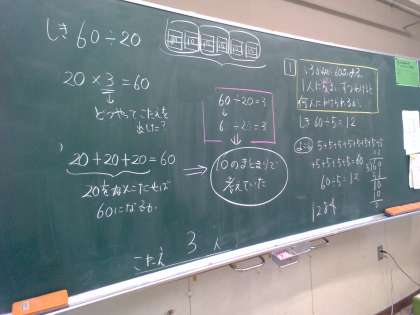 しき 60÷20
20×3=60
どうやってこたえを
出した?
20+20+20=60
20を何こたせば
60になるか
こたえ 3人
60÷20=3
6÷2=3
10のまとまりで
考えていた
1
1人に5まいずつわけると
何人にわけられるか。
しき 60÷5=12
5+5+5+5+5+5+5
+5+5+5+5+5=60
60÷5=12
12
5)60
5
10
10
0